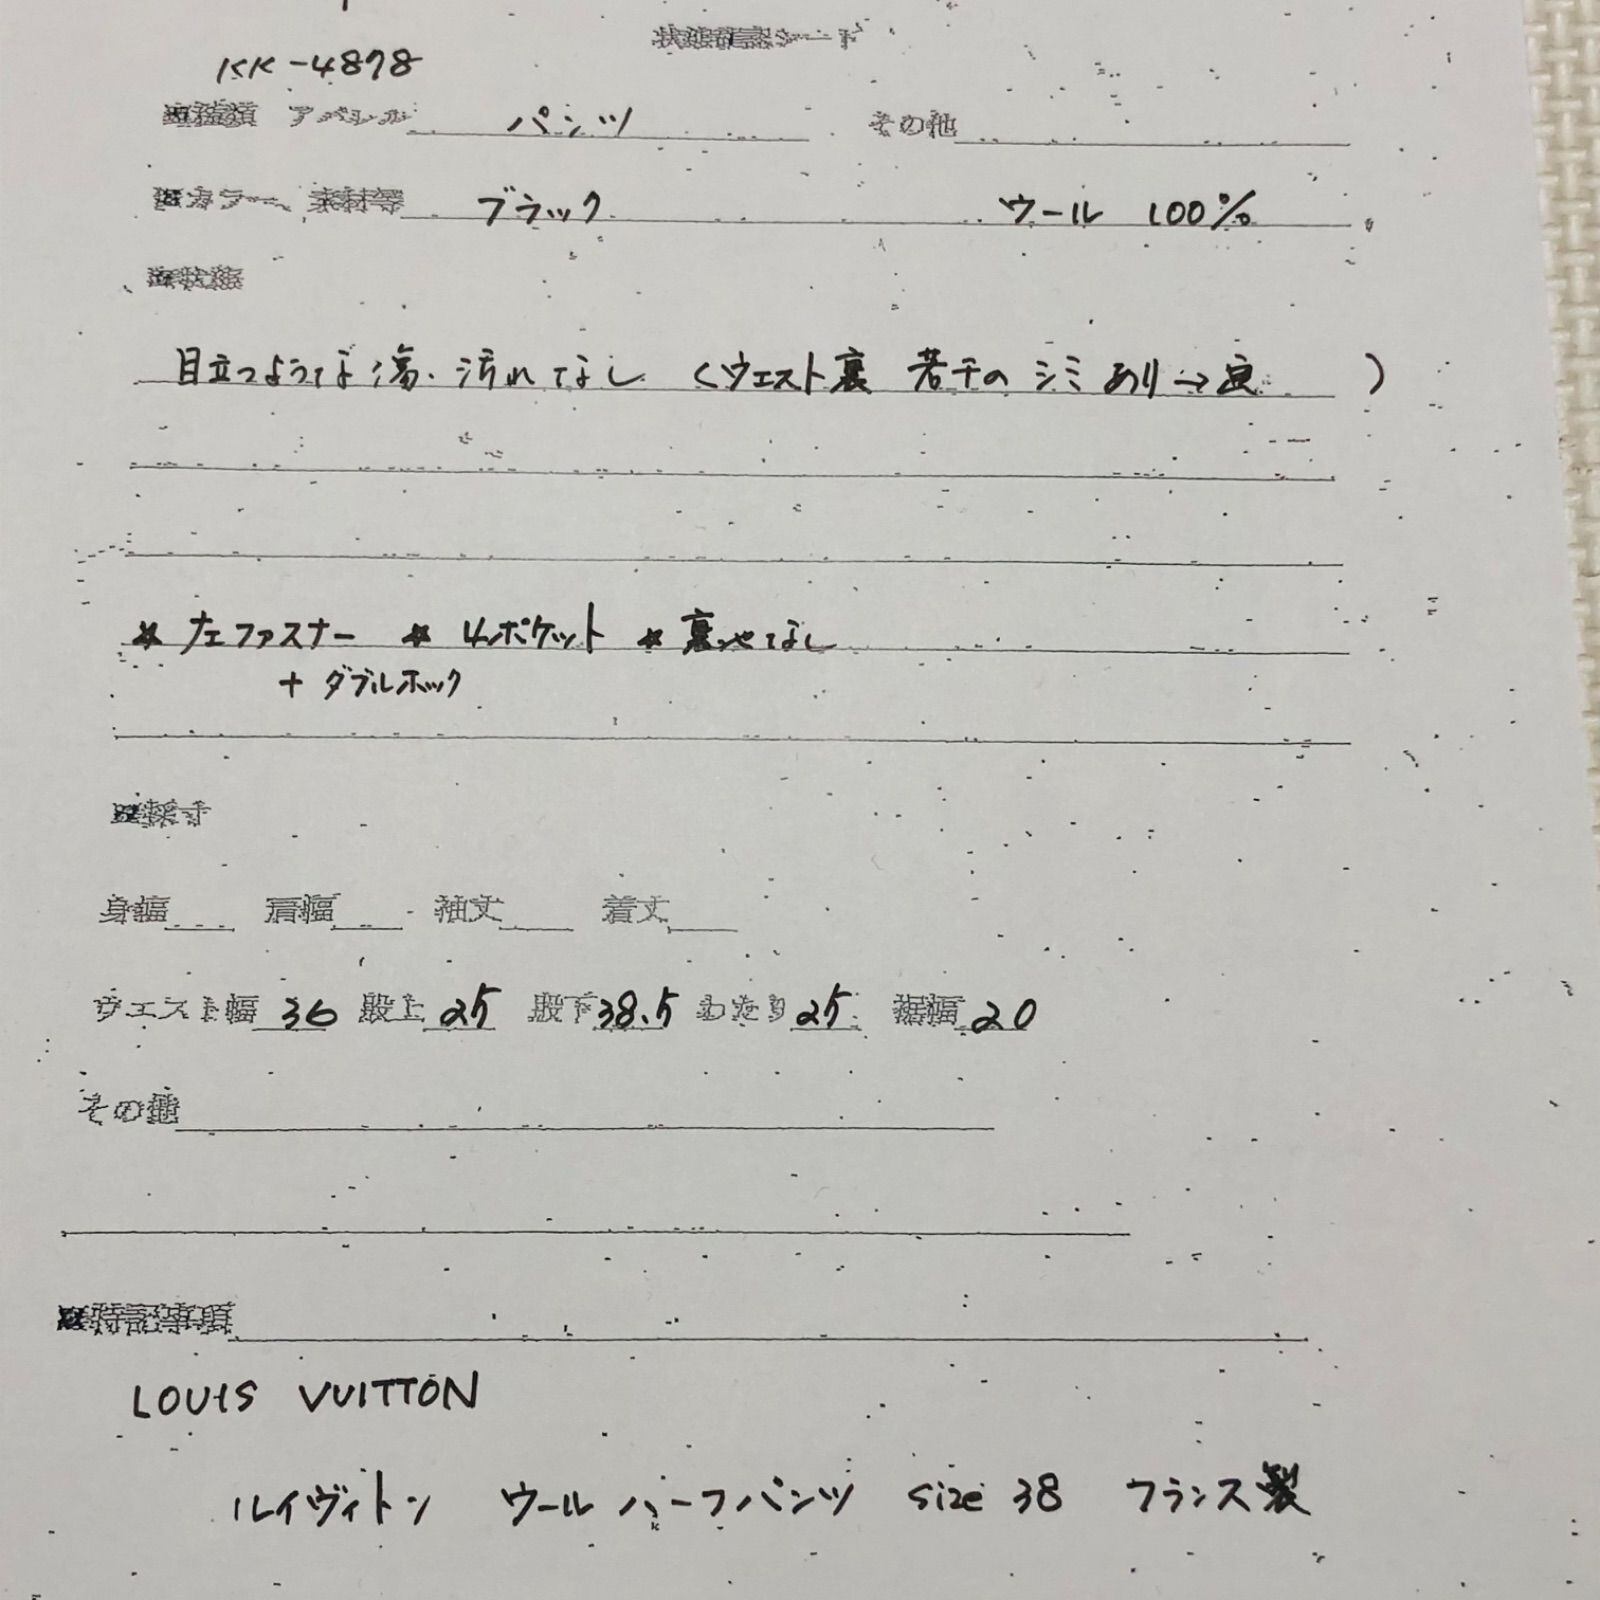 状態確認シート
KK-4878
■種類 アパレル パンツ その他
■カラー、素材等 ブラック ウール 100%
■状態
目立つような傷.汚れなし (ウエスト裏 若干のシミあり→良 )
* 左ファスナー * 4ポケット * 裏地なし
+ ダブルホック
■採寸
身幅 肩幅 袖丈 着丈
ウエスト幅 36 股上 25 股下 38.5 わたり 25 裾幅 20
その他
■特記事項
LOUIS VUITTON
ルイヴィトン ウールハーフパンツ size 38 フランス製